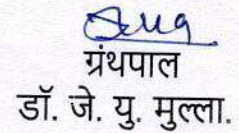 ग्रंथपाल
डॉ. जे. यु. मुल्ला.